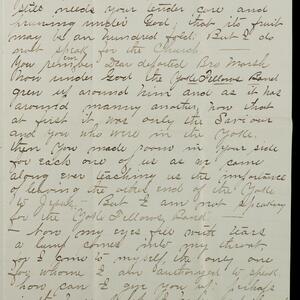 needs your tender care and
pruning under God, that its fruit
may be an hundred fold. But I do
not speak for the Church —
You remember, Dear departed Bro Marsh
how under God the Yoke Fellows Band
grew up around him and as it has
around many another, how that
at first it was only the Saviour
and you who were in the Yoke.
then you made room in your side
for each one of us as we came
along ever teaching us the importance
of leaving the other end of the Yoke
to Jesus. — But I am not speaking
for the Yoke Fellows Band —
— Now my eyes fill with tears
a lump comes into my throat,
for I come to myself, the only one
for whom I am authorized to speak
how can I give you up, perhaps